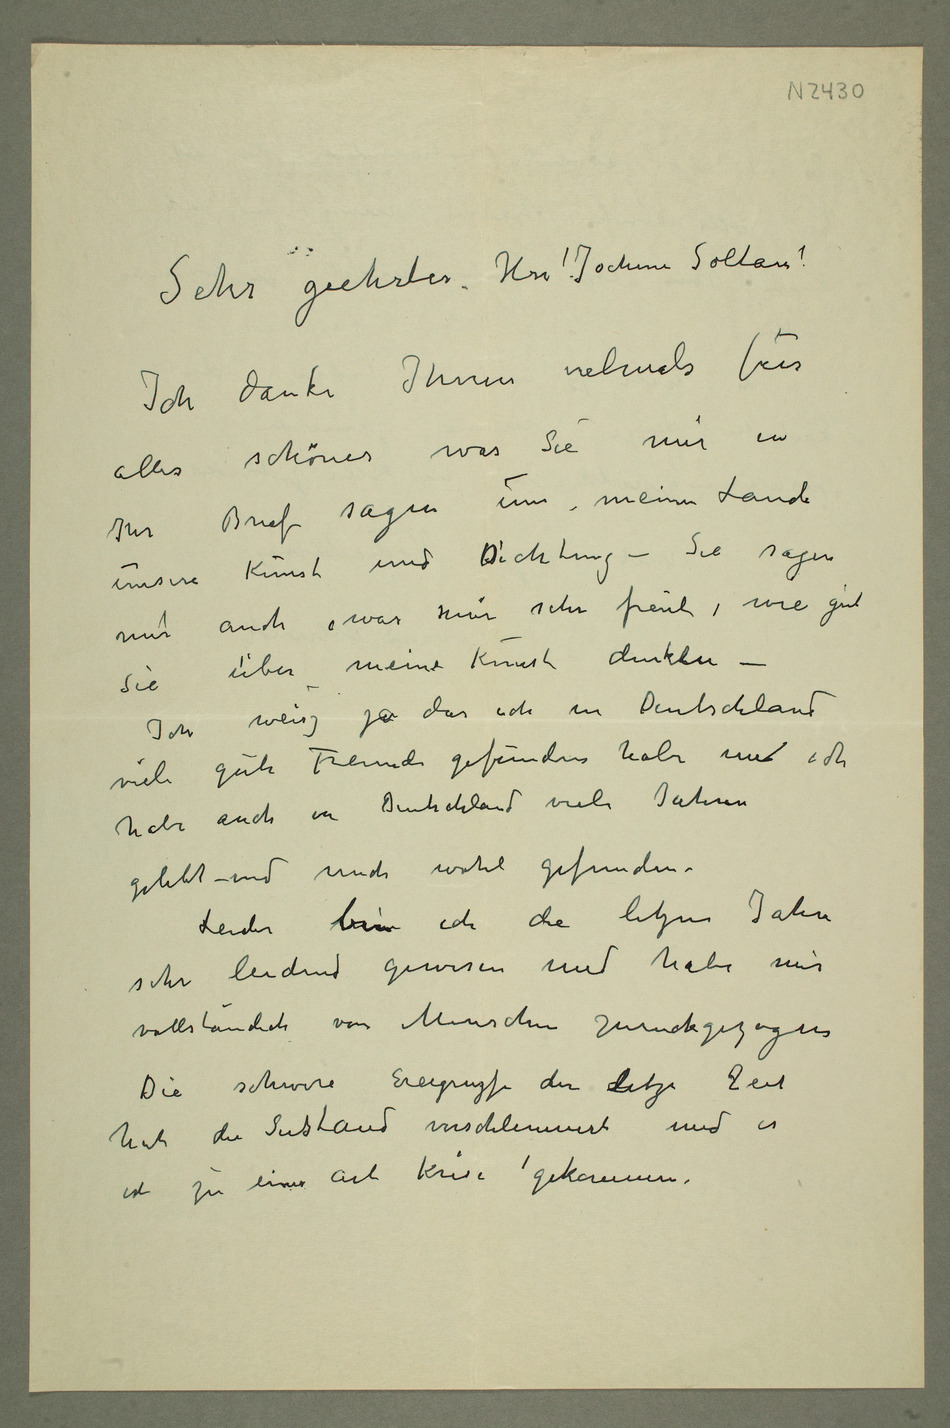 N2430
Sehr geehrter Herr! Jochem Soltau!
Ich danke Ihnen vielmals für
alles schönes was Sie mir in
Ihr Brief sagen um meinen Lande
unsere Kunst und Dichtung – Sie sagen
mir auch, was mir sehr freut, wie gut
Sie über meine Kunst denken –
Ich weisz ja das ich in Deutschland
viele gute Freunde gefunden habe und ich
habe auch in Deutschland viele Jahren
gelebt – und mich wohl gefunden.
Leider bin ich die letzen Jahre
sehr leidend gewesen und habe mir
vollständich von Menschen zurückgezogen
Die schwere Ereignisse der letze Zeit
hat die verschlimmert und es
ist zu eine Art Krise gekommen.